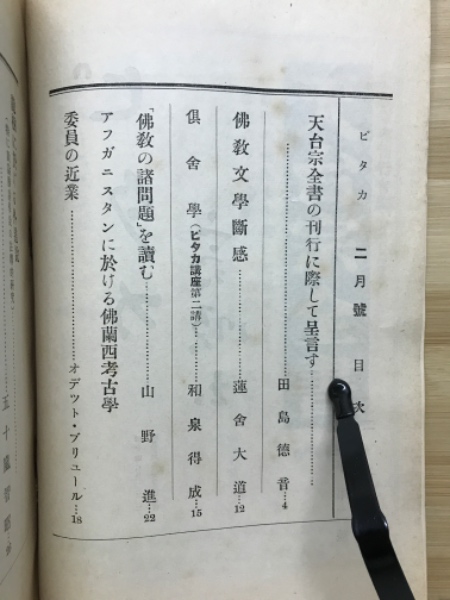 ピタカ 二月號 目次
天台宗全書の刊行に際して呈言す
田島德音 4
佛敎文學斷感 蓮舍大道 12
俱舍學(ピタカ講座第二講) 和泉得成 15
「佛敎の諸問題」を讀む 山野進 22
アフガニスタンに於ける佛蘭西考古學
委員の近業 オデツト・ブリユール 18